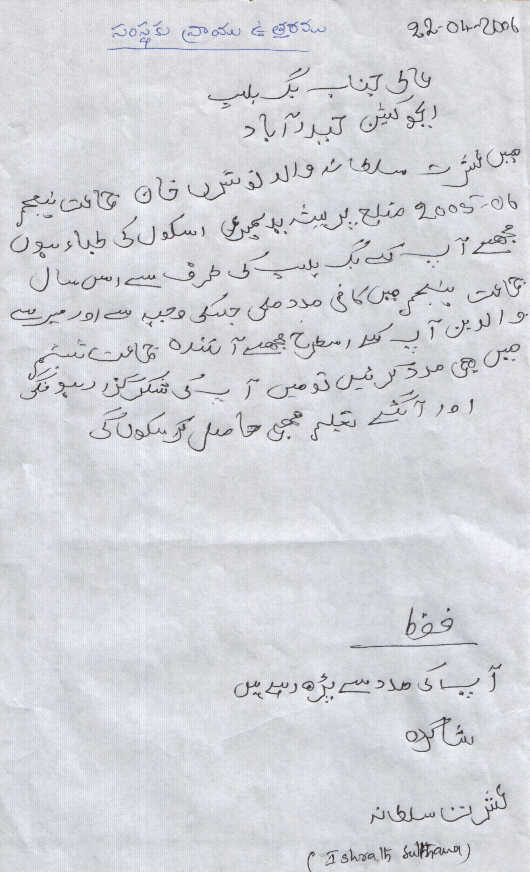 సంస్థకు వ్రాయు ఉత్తరము
22-04-2006
عالی جناب بگ ہلپ
ایجوکیشن حیدرآباد
میں عشرت سلطانہ والد نوشیرں خان جماعت پنجم
2005-06 ضلع پریشد اسکول کی طلباء ہوں
مجھے آپ کے بگ ہلپ کی طرف سے اس سال
جماعت پنجم میں کافی مدد ملی جسکی وجہہ سے اور میرے
والدین آپ اسطرح مجھے آئندہ جماعت ششم
میں بھی مدد کرئیں تو میں آپ کی شکر گزار رہونگی
اور آگئے تعلیم بھی حاصل کر سکوں گی
فقط
آپ کی مدد سے پڑھ رہے ہیں
شاگردہ
عشرت سلطانہ
(Ishrath Sulthana)